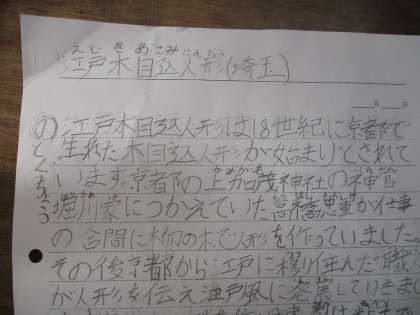 えど きめこみにんぎょう
江戸木目込人形(埼玉)
のとくちょう
江戸木目込人形は18世紀に京都で
生れた木目込人形が始まりとされて
います。京都の上加茂神社の神官
堀川家につかえていた高橋忠重が仕事
の合間に柳の木で人形を作っていました。
その後京都から江戸に移り住んだ職
が人形を伝え江戸風に発展していきま